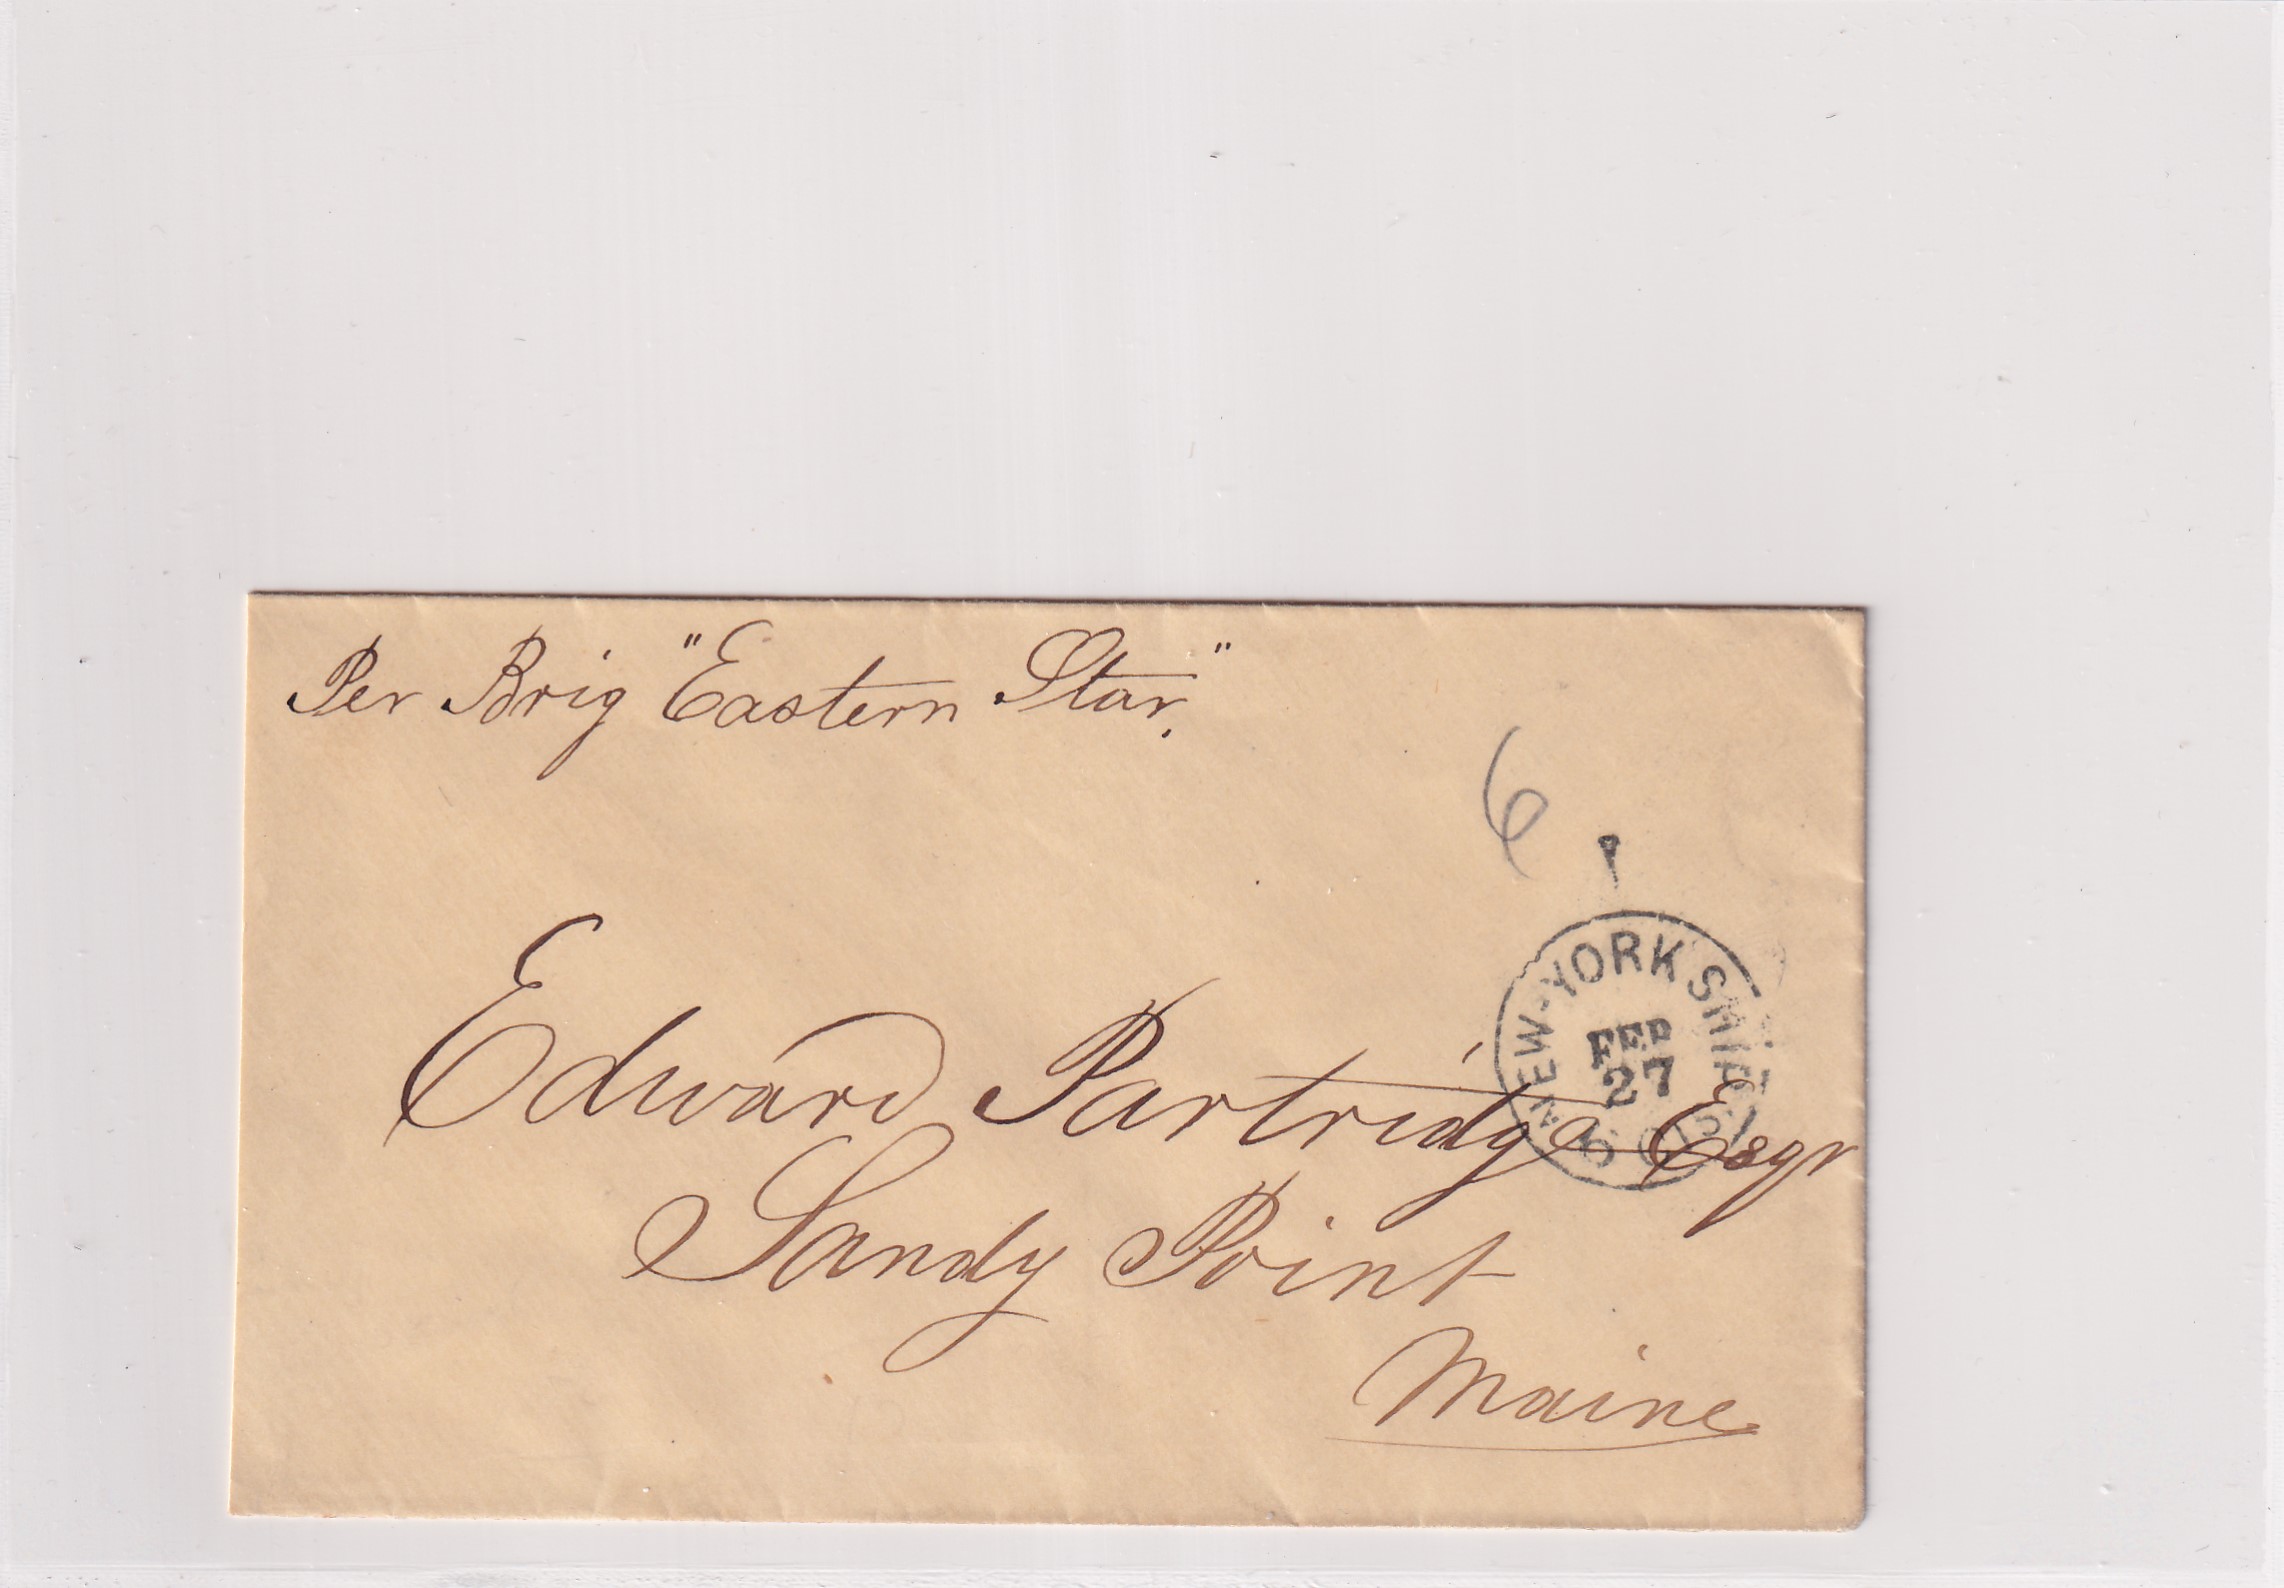 Per Brig "Eastern Star."
6
NEW-YORK SHIP
FEB
27
6 CTS
Edward Partridge Esqr
Sandy Point
Maine